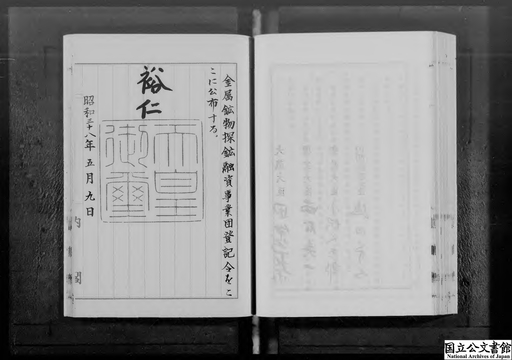 金属鉱物探鉱融資事業団登記令をこ
こに公布する。
裕仁
天皇
御璽
昭和三十八年五月九日
国立公文書館
National Archives of Japan